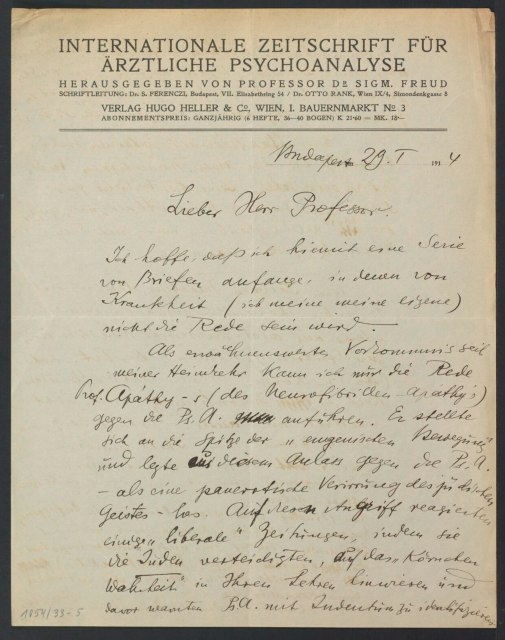 INTERNATIONALE ZEITSCHRIFT FÜR
ÄRZTLICHE PSYCHOANALYSE
HERAUSGEGEBEN VON PROFESSOR DR SIGM. FREUD
SCHRIFTLEITUNG: Dr. S. FERENCZI, Budapest, VII. Elisabethring 54 / Dr. OTTO RANK, Wien IX/4, Simondenkgasse 8
VERLAG HUGO HELLER & Co, WIEN, I. BAUERNMARKT No 3
ABONNEMENTSPREIS: GANZJÄHRIG (6 HEFTE, 36—40 BOGEN) K 21·60 = MK. 18·—
Budapest 29. I 1914
Lieber Herr Professor.
Ich hoffe, daß ich hiemit eine Serie
von Briefen anfange, in denen von
Krankheit (ich meine meine eigene)
nicht die Rede sein wird.
Als erwähnenswertes Vorkommnis seit
meiner Heimkehr kann ich nur die Rede
Prof. Apáthy-s (des Neurofibrillen-Apáthy's)
gegen die Ps.A. anführen. Er stellte
sich an die Spitze der „eugenischen Bewegung"
und legte aus diesem Anlass gegen die Ps.A.
– als eine panerotische Verirrung des jüdischen
Geistes – los. Auf diesen Angriff reagierten
einige „liberale" Zeitungen, indem sie
die Juden verteidigten, auf das „Körnchen
Wahrheit" in Ihren Lehren hinwiesen und
davor warnten Ps.A. mit Judentum zu identifizieren
1054/33-5